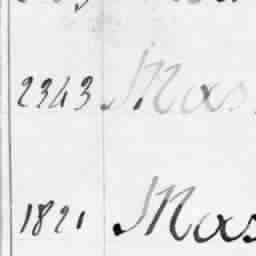 2343 Mas
1821 Mas